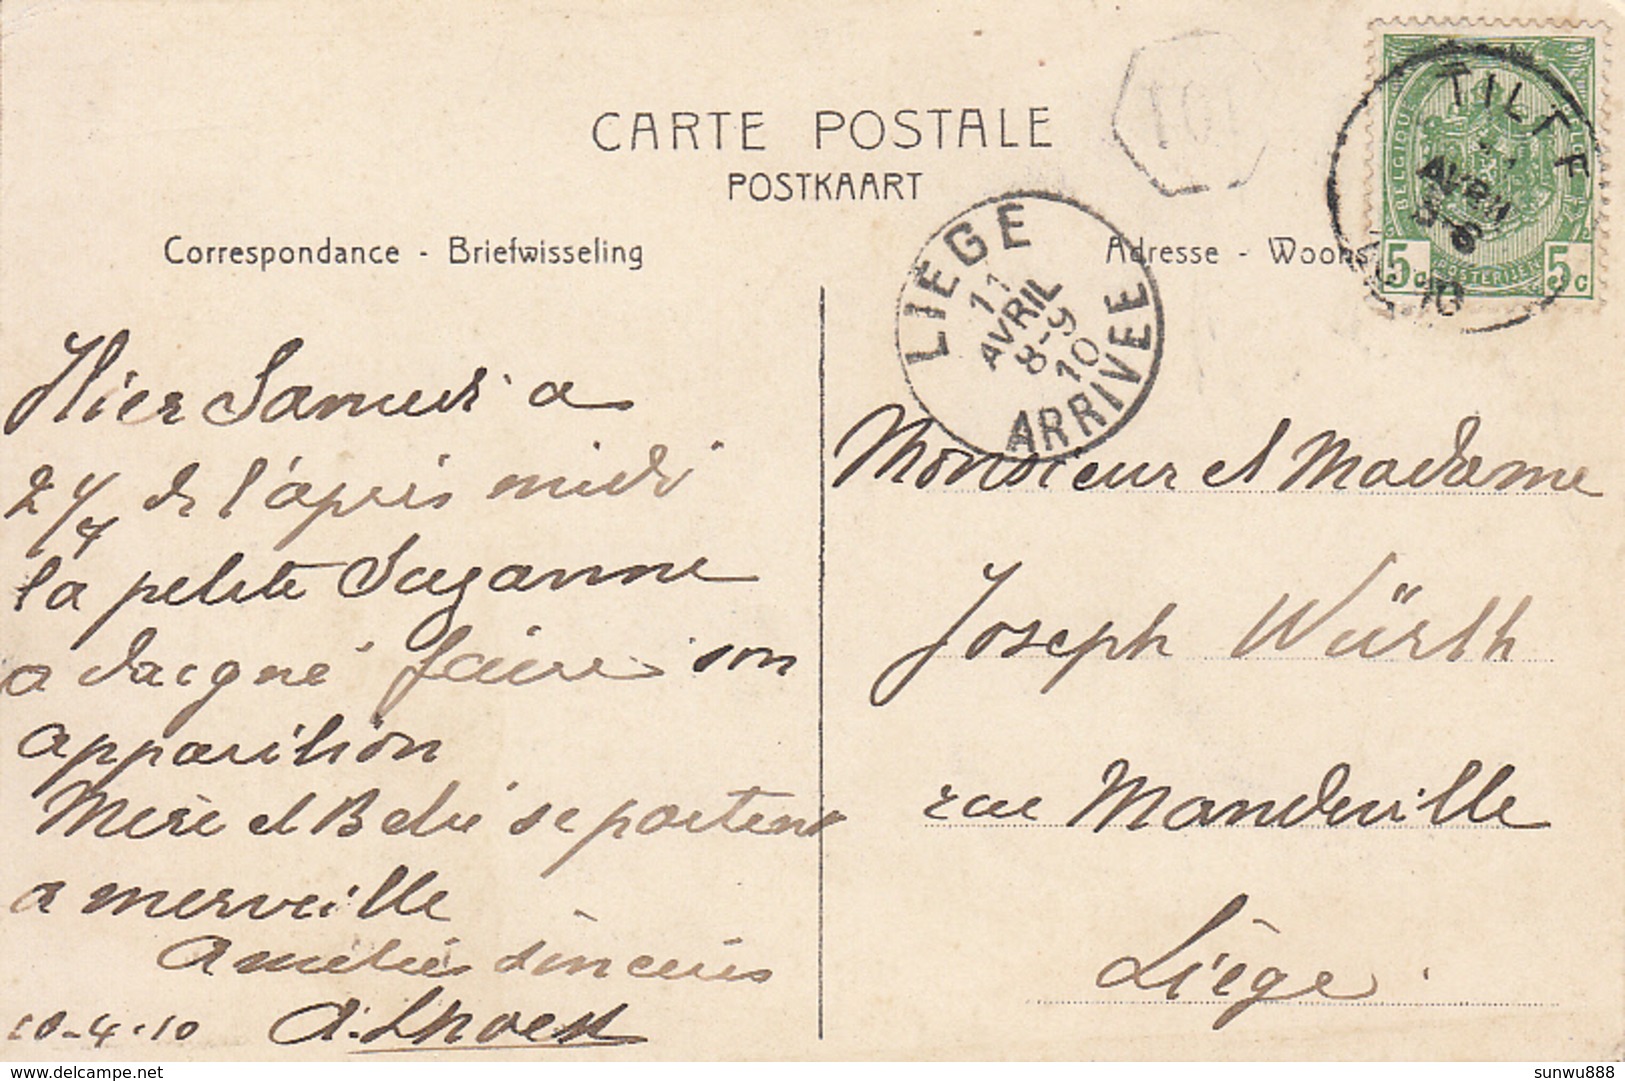 CARTE POSTALE
POSTKAART
Correspondance - Briefwisseling
Adresse - Woons
TILFF
AVRIL
10
BELGIQUE
POSTERIJEN
5c 5c
LIEGE
11
AVRIL
8-9
10
ARRIVEE
Hier Samedi a
2 1/4 de l'après midi
la petite Suzanne
a daigné faire son
apparition
Mère et Bébé se portent
a merveille
Amitiés sincères
10-4-10
Monsieur et Madame
Joseph Würth
rue Mandeville
Liège.
delcampe.net
sunwu888